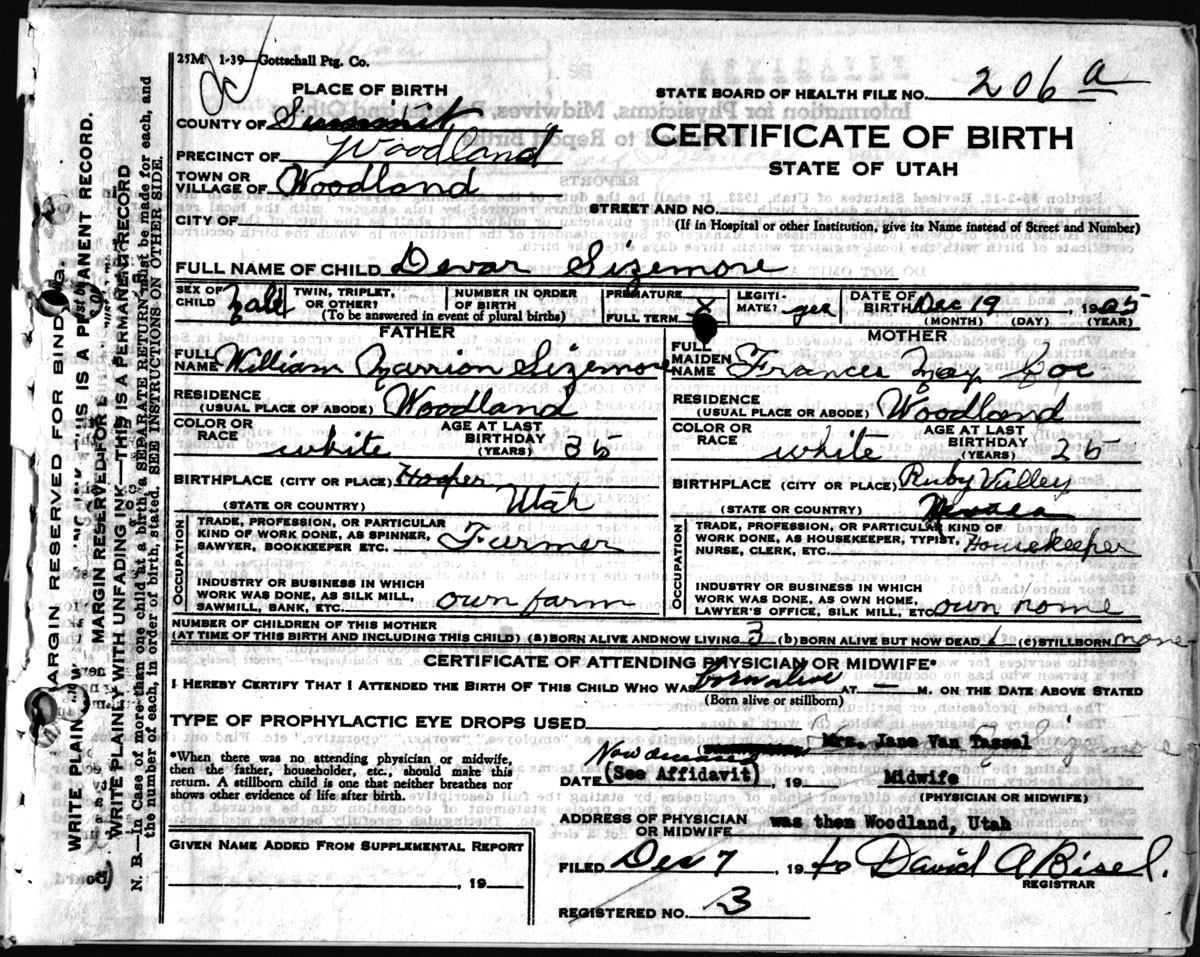 25M 1-39—Gottschall Ptg. Co.
STATE BOARD OF HEALTH FILE NO. 206 a
PLACE OF BIRTH
COUNTY OF Summit
PRECINCT OF Woodland
TOWN OR
VILLAGE OF Woodland
CITY OF
CERTIFICATE OF BIRTH
STATE OF UTAH
STREET AND NO.
(If in Hospital or other Institution, give its Name instead of Street and Number)
FULL NAME OF CHILD Devar Sizemore
SEX OF CHILD Male
TWIN, TRIPLET, OR OTHER?
NUMBER IN ORDER OF BIRTH
(To be answered in event of plural births)
PREMATURE
FULL TERM X
LEGITIMATE? yes
DATE OF BIRTH Dec 19, 1905
(MONTH) (DAY) (YEAR)
FATHER
FULL NAME William Marrion Sizemore
RESIDENCE
(USUAL PLACE OF ABODE) Woodland
COLOR OR RACE white
AGE AT LAST BIRTHDAY (YEARS) 35
BIRTHPLACE (CITY OR PLACE) Hooper
(STATE OR COUNTRY) Utah
OCCUPATION
TRADE, PROFESSION, OR PARTICULAR
KIND OF WORK DONE, AS SPINNER,
SAWYER, BOOKKEEPER ETC. Farmer
INDUSTRY OR BUSINESS IN WHICH
WORK WAS DONE, AS SILK MILL,
SAWMILL, BANK, ETC. own farm
MOTHER
FULL MAIDEN NAME Frances May
RESIDENCE
(USUAL PLACE OF ABODE) Woodland
COLOR OR RACE white
AGE AT LAST BIRTHDAY (YEARS) 25
BIRTHPLACE (CITY OR PLACE) Ruby Valley
(STATE OR COUNTRY) Nevada
OCCUPATION
TRADE, PROFESSION, OR PARTICULAR KIND OF
WORK DONE, AS HOUSEKEEPER, TYPIST,
NURSE, CLERK, ETC. Housekeeper
INDUSTRY OR BUSINESS IN WHICH
WORK WAS DONE, AS OWN HOME,
LAWYER'S OFFICE, SILK MILL, ETC own home
NUMBER OF CHILDREN OF THIS MOTHER
(AT TIME OF THIS BIRTH AND INCLUDING THIS CHILD) (a) BORN ALIVE AND NOW LIVING 3 (b) BORN ALIVE BUT NOW DEAD 1 (c) STILLBORN none
CERTIFICATE OF ATTENDING PHYSICIAN OR MIDWIFE*
I HEREBY CERTIFY THAT I ATTENDED THE BIRTH OF THIS CHILD WHO WAS born alive AT — M. ON THE DATE ABOVE STATED
(Born alive or stillborn)
TYPE OF PROPHYLACTIC EYE DROPS USED
*When there was no attending physician or midwife,
then the father, householder, etc., should make this
return. A stillborn child is one that neither breathes nor
shows other evidence of life after birth.
Mrs. Jane Van Tassel
DATE (See Affidavit), 19 Midwife
(PHYSICIAN OR MIDWIFE)
ADDRESS OF PHYSICIAN
OR MIDWIFE was then Woodland, Utah
GIVEN NAME ADDED FROM SUPPLEMENTAL REPORT
, 19
FILED Dec 7, 1940 David A Bisel.
REGISTRAR
REGISTERED NO. 3
MARGIN RESERVED FOR BINDING.
MARGIN RESERVED FOR B
WRITE PLAINLY WITH UNFADING INK—THIS IS A PERMANENT RECORD
N. B.—In Case of more than one child at a birth, a SEPARATE RETURN must be made for each, and
the number of each, in order of birth, stated. SEE INSTRUCTIONS ON OTHER SIDE.